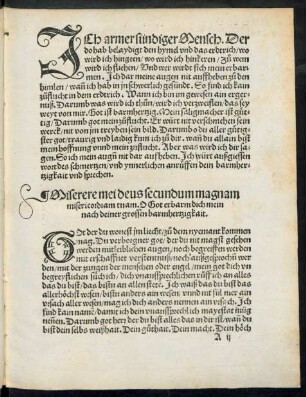 ICh armer sündiger Mensch. Der
do hab belaydigt den hymel vnd das erdtrich/ wo
wird ich hingeen/ wo wird ich hinkeren/ Zů wem
wird ich fliehen/ Vnd wer wirdt sich mein erbar-
men. Ich dar meine augen nit auffheben zů den
himlen/ wañ ich hab in jn schwerlich gesündt. So find ich kain
zůflucht in dem erdtrich. Wann ich bin im gewesen ain erger-
nuß. Darumb was wird ich thůn/ wird ich verzweiflen/ das sey
weyt von mir. Got ist barmhertzig. Mein saligmacher ist güt-
tig/ Darumb got mein zůflucht. Er würt nit verschmehen sein
werck/ nit von jm treyben sein bild. Darumb o du aller gütig-
ster got/ traurig vnd laidig kum ich zů dir. wañ du allain bist
mein hoffnung vnnd mein zůflucht. Aber was wird ich dir sa-
gen. So ich mein augñ nit dar auffheben. Ich würt außgiessen
wort des schmertzen/ vnd ymerlichen anrůffen dein barmher-
tzigkait vnd sprechen.
¶Miserere mei deus secundum magnam
misericordiam tuam. O Got erbarm dich mein
nach deiner grossen barmhertzigkait.
GOt der du wonest jm liecht/ zů dem nyemant kommen
mag. Du verborgner got/ der du nit magst gesehen
werden mit leiblichen augen/ noch begreyffen werden
mit erschaffner verstentnuß/ noch außgesprochñ wer-
den/ mit der zungen der menschen oder engel/ mein got dich vn-
begreyflichen sůch ich/ dich vnaußsprechlichen růff ich an alles
das du bist/ das bistu an allen stetē. Ich waiß das du bist das
allerhöchst wesen/ bistu anders ain wesen vnnd nit fil mer ain
vrsach aller wesen/ mag ich dich anders nennen ain vrsach. Ich
find kain namē/ damit ich dein vnaußsprechlich mayestat müg
nēnen. Darumb got herr der du bist alles das in der ist/ wañ du
bist dein selbs weißhait. Dein güthait. Dein macht. Dein höch
A ij